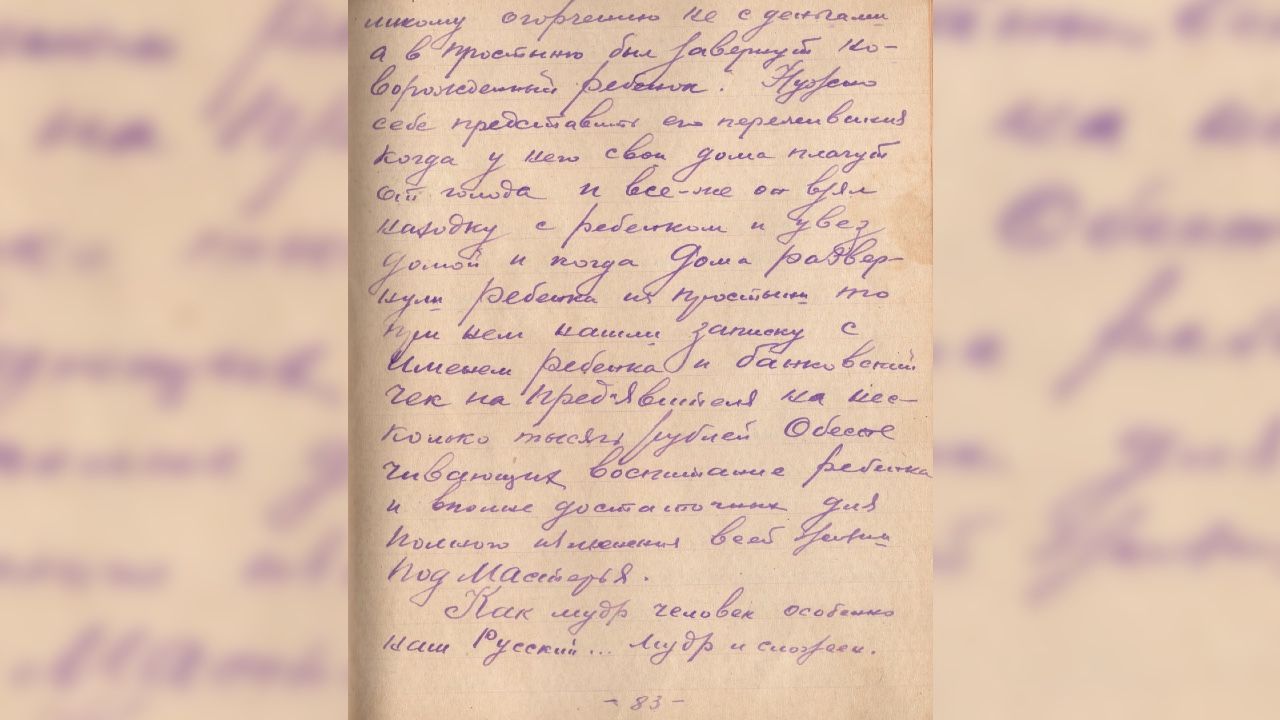 ликому огорчению не с деньгами
а в простыню был завернут но-
ворожденный ребенок. Нужно
себе представить его переживания
когда у него свои дома плачут
от голода и все-же он взял
находку с ребенком и увез
домой и когда дома развер-
нули ребенка из простыни то
при нем нашли записку с
именем ребенка и банковский
чек на пред'явителя на нес-
колько тысяч рублей Обеспе
чивающих воспитание ребенка
и вполне достаточных для
полного изменения всей жизни
Подмастерья.
Как мудр человек особенно
наш Русский... мудр и сложен.
- 83 -